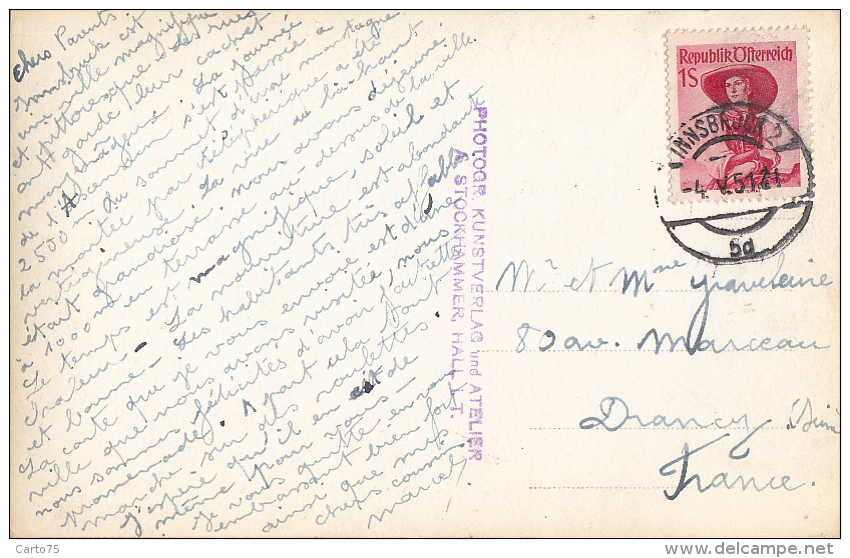 Chers Parents
Innsbruck est
une ville magnifique
et pittoresque, ses rues
ont gardé leur cachet
moyenâgeux. La journée
de l'Ascension s'est passée à
2500 m au sommet d'une montagne
la montée par téléphérique a été
vertigineuse. La vue de là-haut
était grandiose, nous avons déjeuné
à 1000 m en terrasse au-dessus de la ville.
Le temps est magnifique, soleil et
chaleur. La nourriture est abondante
et bonne. Les habitants très affables
La carte que je vous envoie est d'une
ville que nous avons visitée, nous
nous sommes félicités d'avoir fait cette
promenade. A part cela tout
marche sur des roulettes
J'espère qu'il en est de
même pour vous.
Je vous quitte en vous
embrassant bien fort
ainsi que mes
chers cousins
Marcel
PHOTOGR. KUNSTVERLAG und ATELIER
A. STOCKHAMMER, HALL i. T.
Republik Österreich
1S
INNSBRUCK 2
-4. V. 51. 21
5d
Mr et Mme Graveleine
80 av. Marceau
Drancy (Seine
France.
Carto75
http://www.delcampe.net